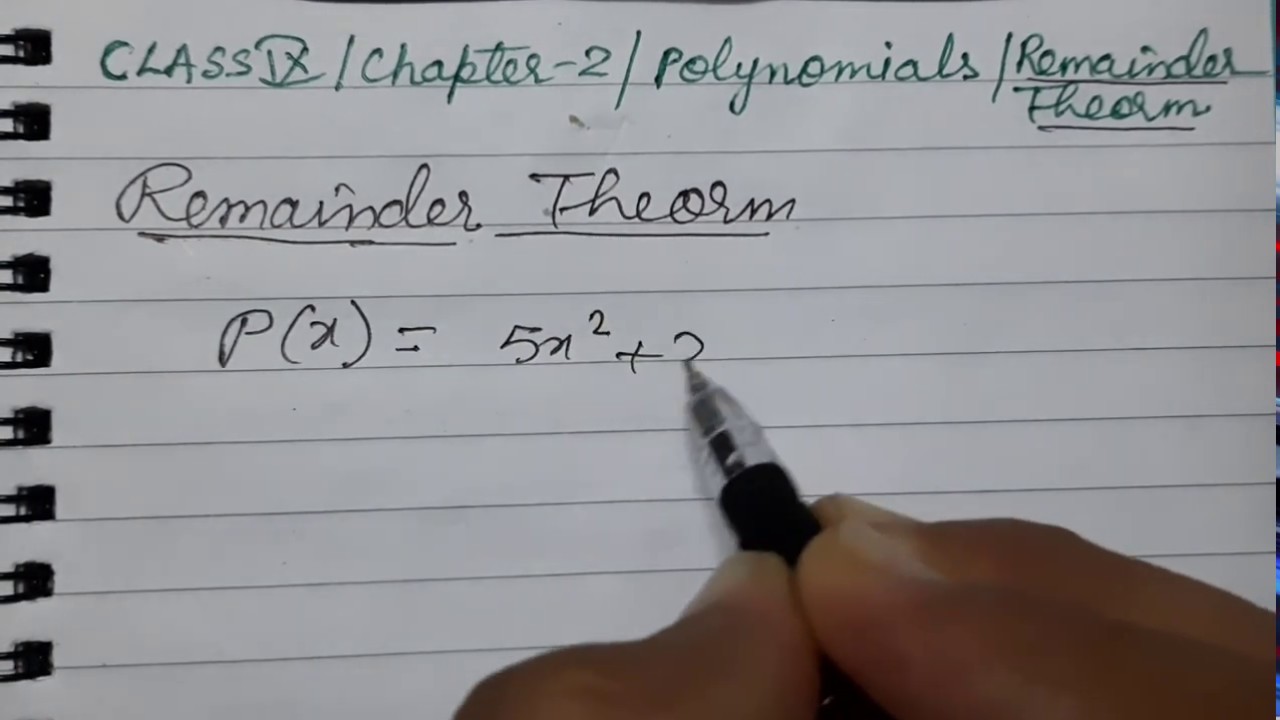 CLASS IX / Chapter-2 / Polynomials / Remainder
Theorm
Remainder Theorm
P(x) = 5x² +